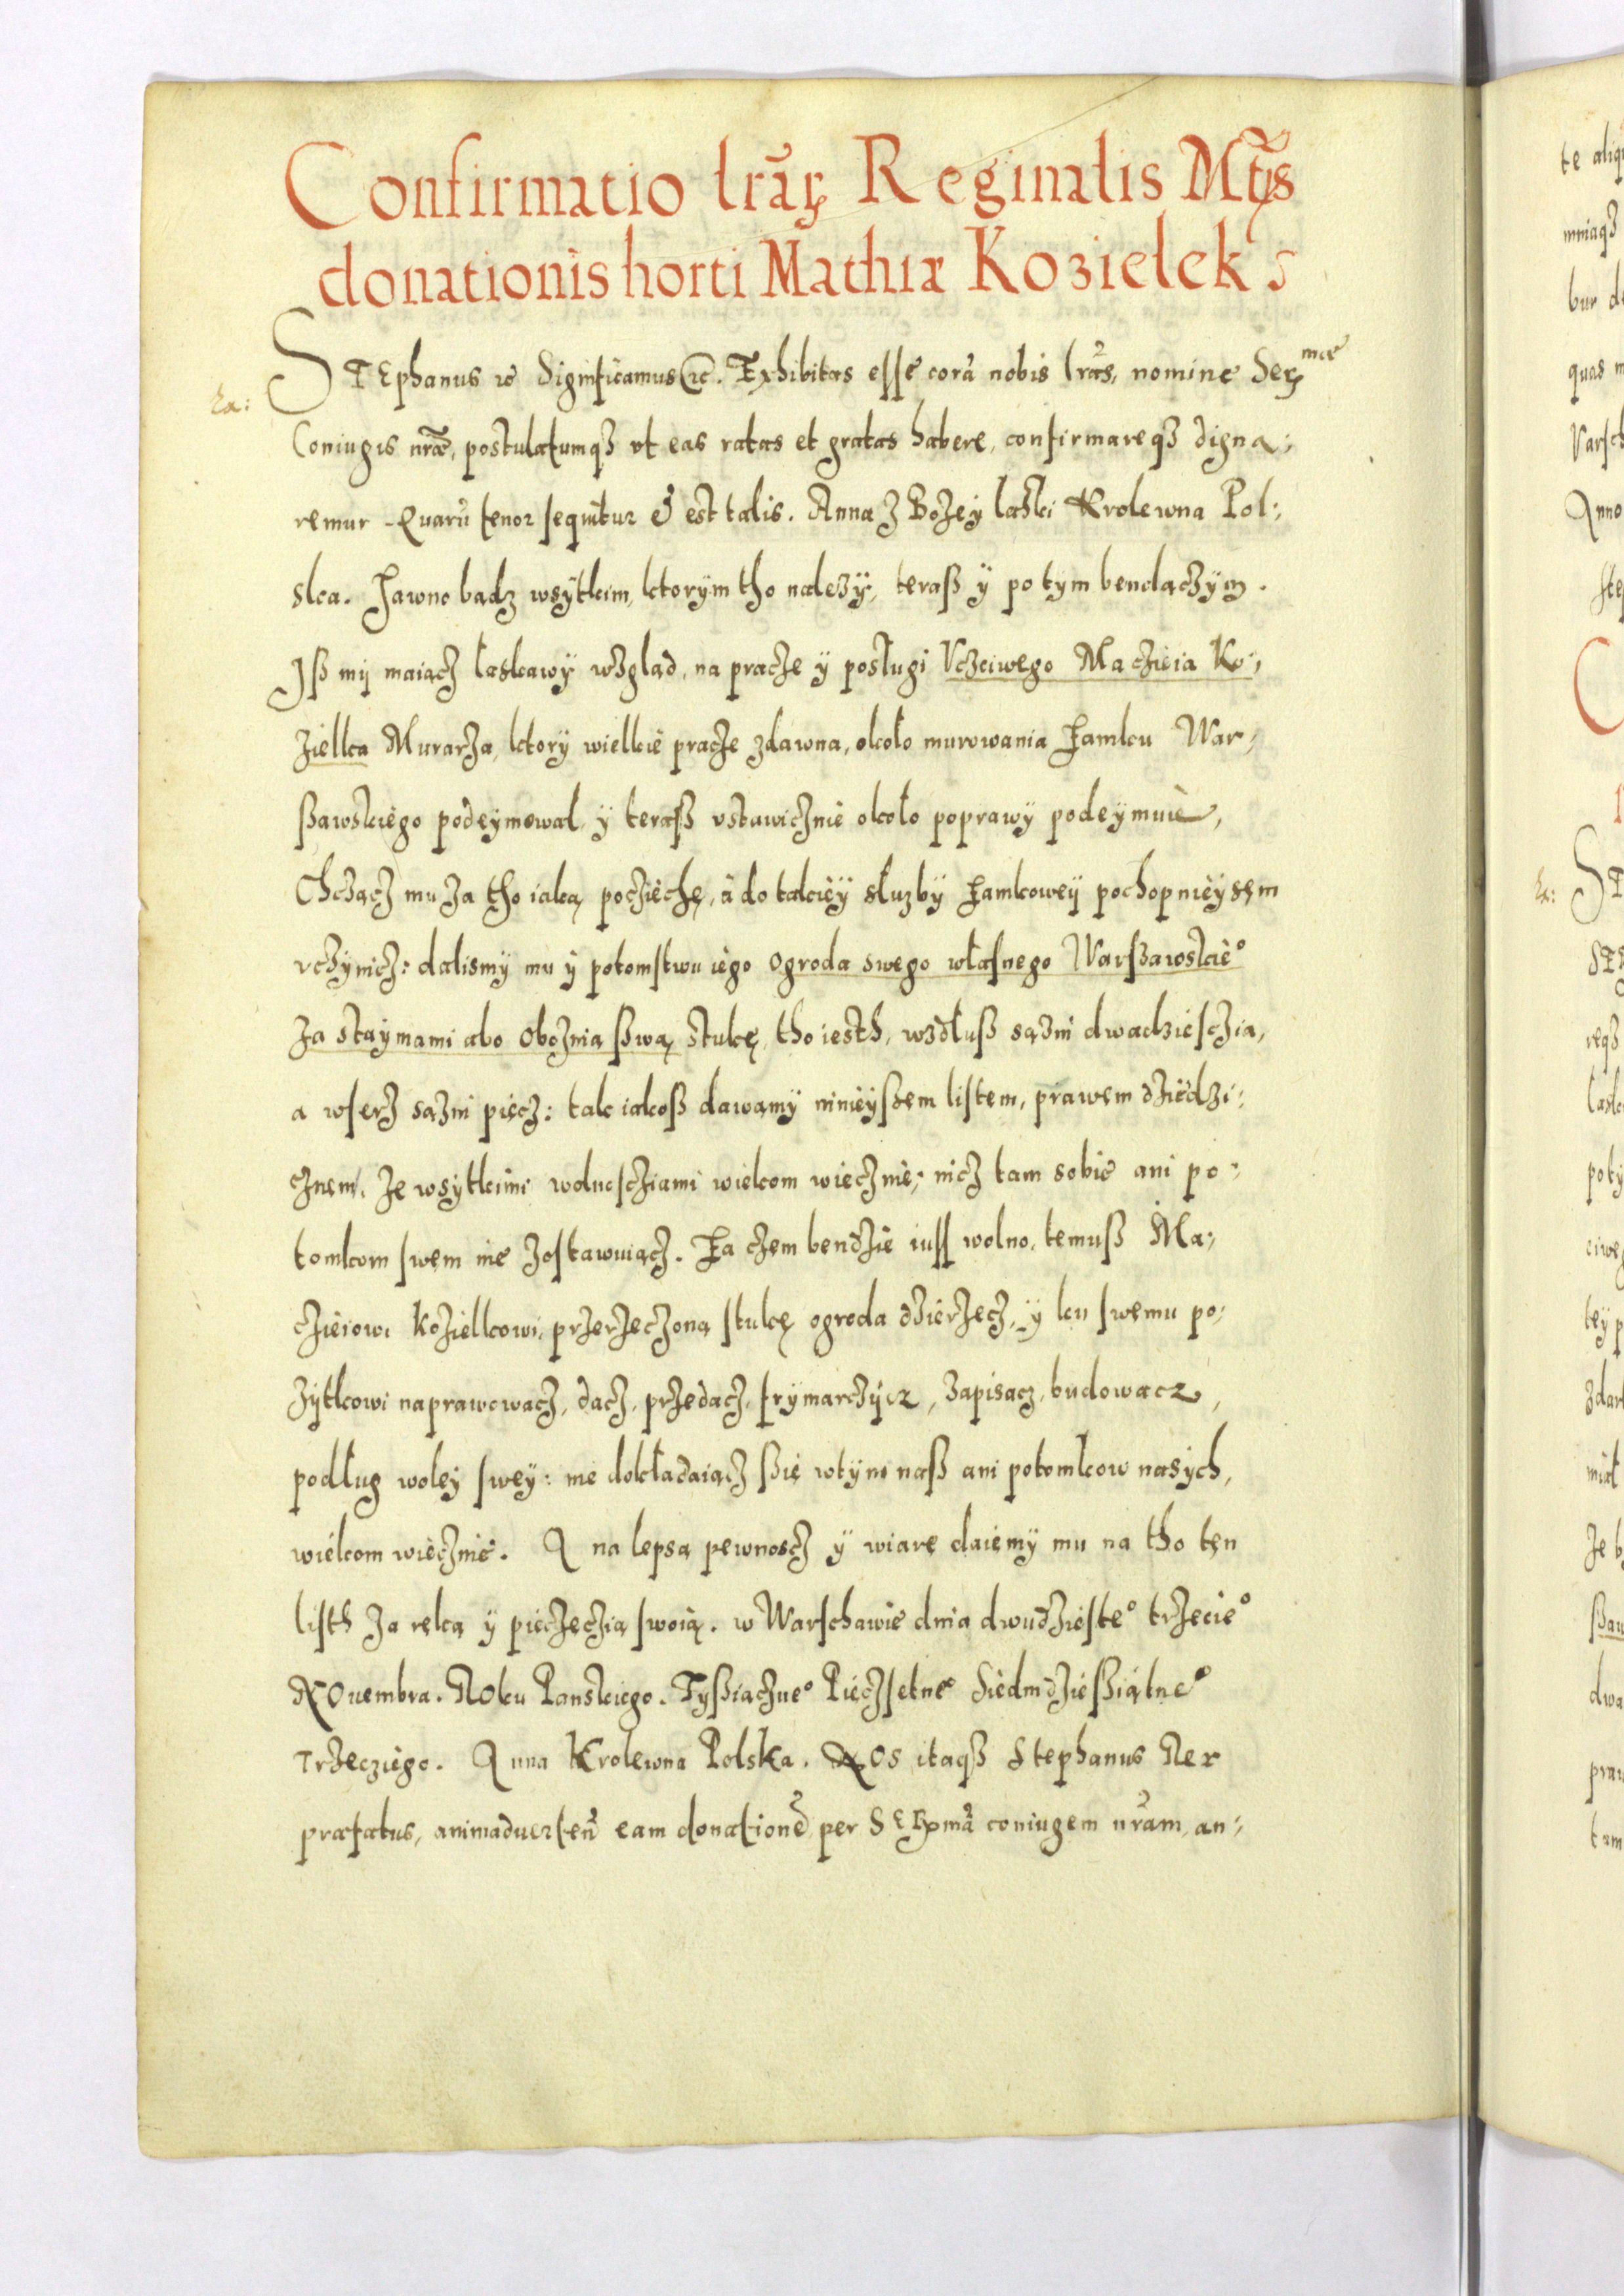 Confirmatio lr̃aꝝ Reginalis Mt̃is
donationis horti Mathiæ Kozielek
STEphanus ꝛc Significamus ꝛc. Exhibitas esse corã nobis lr̃as, nomine Serᵐᵃᵉ
Ea:
Coniugis nr̃æ, postulatumqꝫ vt eas ratas et gratas habere, confirmareqꝫ digna:
remur. Quarũ tenor sequitur & est talis. Anna z Bożey łaski Krolewna Pol:
ska. Jawno bądz wsytkim, ktorym tho należÿ, teraß ÿ potym bendączÿm.
Iß mÿ maiącz łaskawÿ wzgląd, na pracze ÿ posługi Vczciwego Maczieia Ko:
ziełka Murarza, ktorÿ wielkie pracze zdawna, około murowania Zamku War:
ßawskiego podeÿmował ÿ teraß vstawicznie około poprawÿ podeÿmuie,
Chcząc mu za tho iaką pocziechę, à do takieÿ służbÿ Zamkoweÿ pochopnieÿsem
vczÿnicz: dalismÿ mu ÿ potomstwu iego ogroda swego własnego Warßawskie°
za staÿniami abo Oboznią ßwą stukę, tho iesth, wzdłuß sązni dwadziesczia,
a wserz sązni piecz: tak iakoß dawamÿ ninieÿßem listem, prawem dziedzi:
cznem, ze wsÿtkimi wolnoscziami wiekom wiecznie; nicz tam sobie ani po:
tomkom swem nie zostawuiącz. Za czem bendzie iuß wolno temuß Ma:
cziejowi Koziełkowi, przerzeczoną stukę ogroda dzierzecz, ÿ ku swemu po:
żÿtkowi naprawowacz, dacz, przedacz, frÿmarczÿcz, zapisacz, budowacz,
podług woleÿ sweÿ: nie dokładaiącz ßie wtÿm naß ani potomkow nasÿch,
wiekom wiecznie. A na lepsą pewnoscz ÿ wiarę daiemÿ mu na tho ten
listh za ręką ÿ pieczęczią swoią. w Warschawie dnia dwudzieste° trzecie°
NOuembra. ROku Panskiego. Tÿßiączne° Piecżsetne° Siedmdzießiątne°
Trzecziego. Anna Krolewna Polska. NOs itaqꝫ Stephanus Rex
præfatus, animaduerten̄ eam donationẽ per SERꝫmã coniugem nr̃am, an: